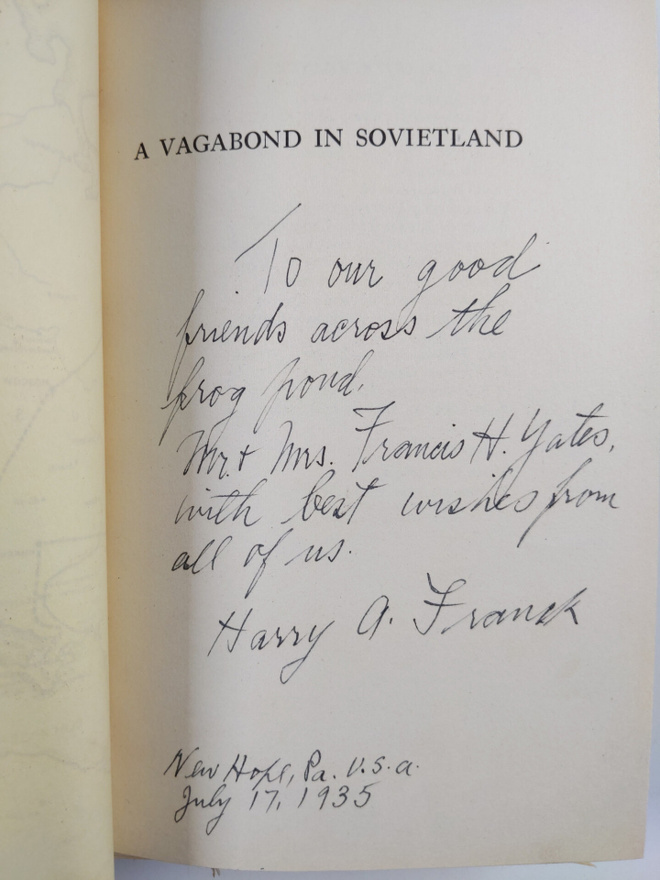 A VAGABOND IN SOVIETLAND
To our good
friends across the
frog pond,
Mr. + Mrs. Francis H. Yates,
with best wishes from
all of us.
Harry A. Franck
New Hope, Pa. U.S.A.
July 17, 1935